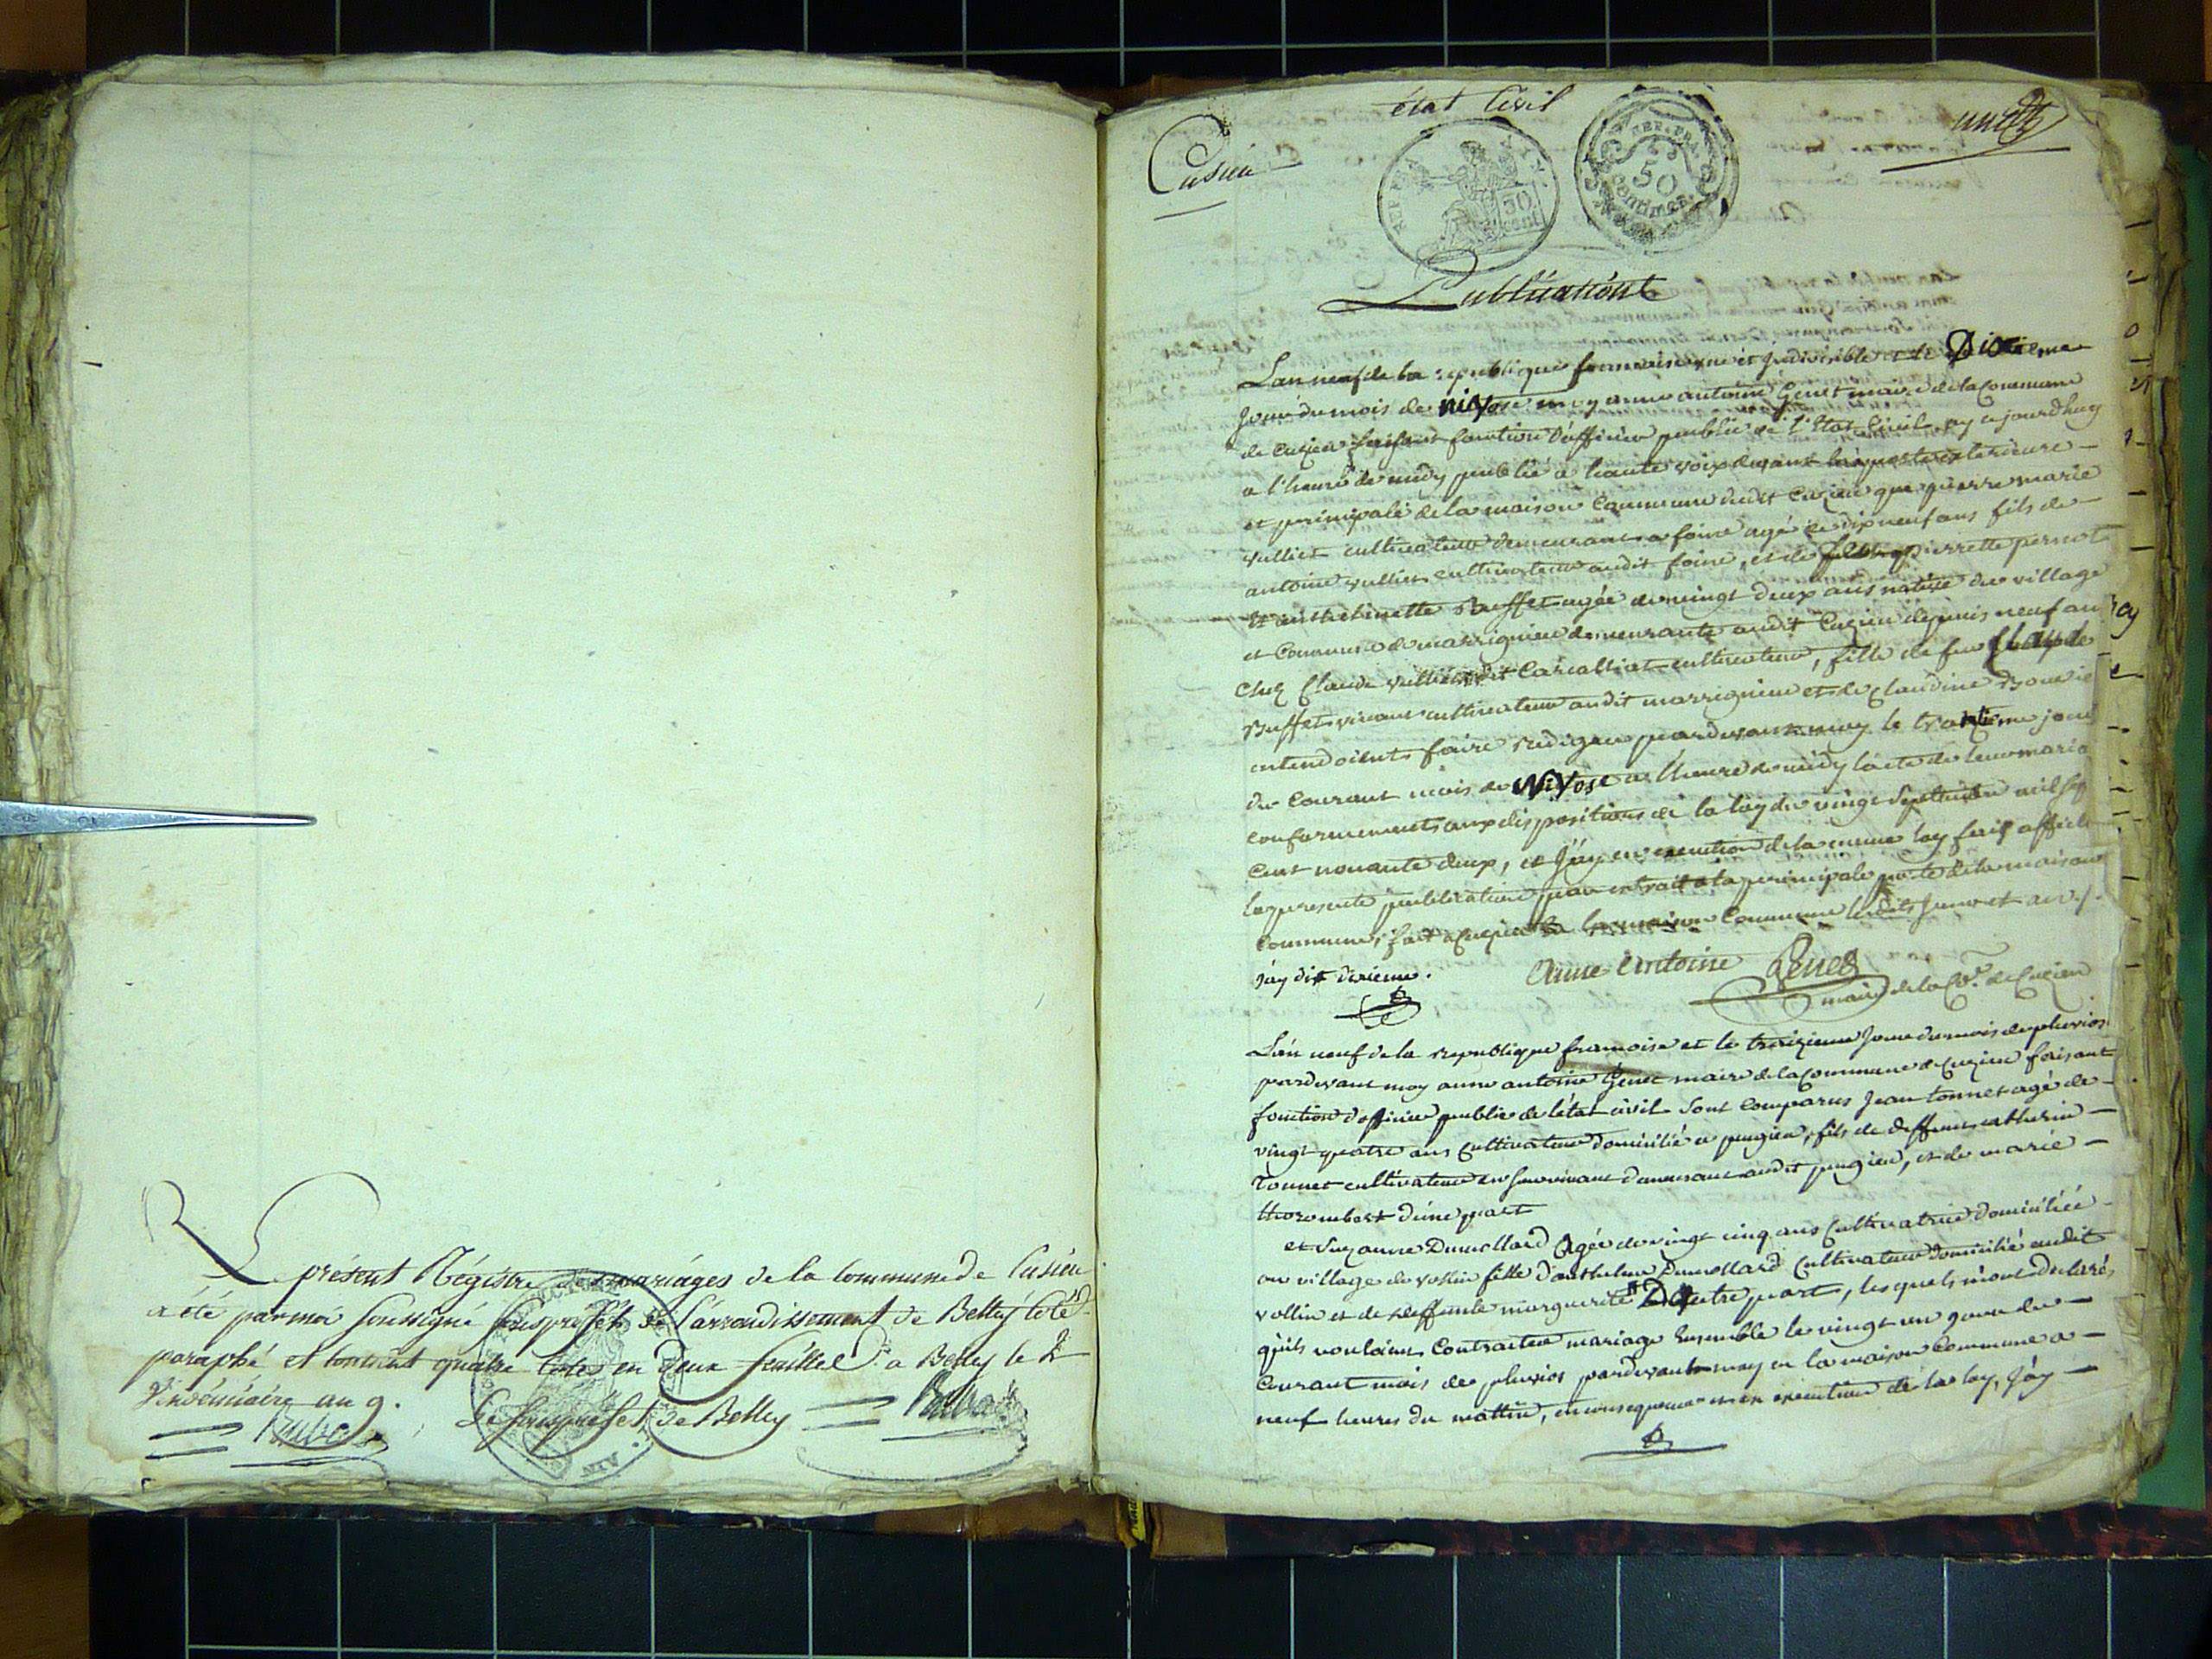 Le présent Régistre des mariages de la Commune de Cusieu
a été par moi soussigné souspréfet de l'arrondissement de Belley coté
paraphé et contient quatre cotes en deux feuilles. a Belley le 2
Vendémiaire an 9.
Le souspréfet de Belley
état Civil
Cusieu
REP. FRA.
50 cent
REP. FRA.
50
Centimes
Publications
L'an neuf de la republique francoise une et indivisible et le Dixieme
jour du mois de nivose moy anne antoine Genet maire de la commune
de Cuzieu faisant fonction d'officier public de l'Etat Civil, ay cejourdhuy
a l'heure de midy publié a haute voix devant la porte exterieure
et principale de la maison Commune dudit Cuzieu que pierre marie
vulliet cultivateur demeurant a foirie agé de dix neuf ans fils de
antoine vulliet cultivateur audit foirie, et de pierrette pernot
Et anthelmette Buffet agée de vingt deux ans native du village
et Commune de marrignieu demeurante audit Cuzieu depuis neuf an
chez Claude vulliet dit cultivateur, fille de feu Claude
Buffet vivant cultivateur audit marrignieu et de claudine
entendoient faire rediger pardevant moy le trantieme jour
du courant mois de Nivose a l'heure de midy lacte de leur maria
conformement aux dispositions de la loy du vingt septembre mil sep
cent nonante deux, et j'ay en execution de la meme loy fait affich
la presente publication par extrait a la principale porte de la maison
commune, fait a Cuzieu la maison Commune lesdits jour et an
j'ay dit dixieme. Anne Antoine Genet
maire de la Cne. de Cuzieu
L'an neuf de la republique francoise et le treizieme jour du mois de pluvios
pardevant moy anne antoine Genet maire de la commune de Cuzieu faisant
fonction d'officier public de l'état civil sont comparus jean tonnet agé de
vingt quatre ans cultivateur domicilié a pugieu, fils de deffunt catherin
tonnet cultivateur en son vivant demeurant audit pugieu, et de marie
thorombert d'une part
et suzanne Dumollard agée de vingt cinq ans cultivatrice domiciliée
au village de vollin fille d'anthelme Dumollard cultivateur domicilié audit
vollin et de deffunte marguerite D'autre part, lesquels m'ont declarés
qu'ils vouloient Contracter mariage Ensemble le vingt un jour du
Courant mois de pluvios pardevant moy en la maison Commune a
neuf heures du mattin, en consequence et en execution de la loy, j'ay